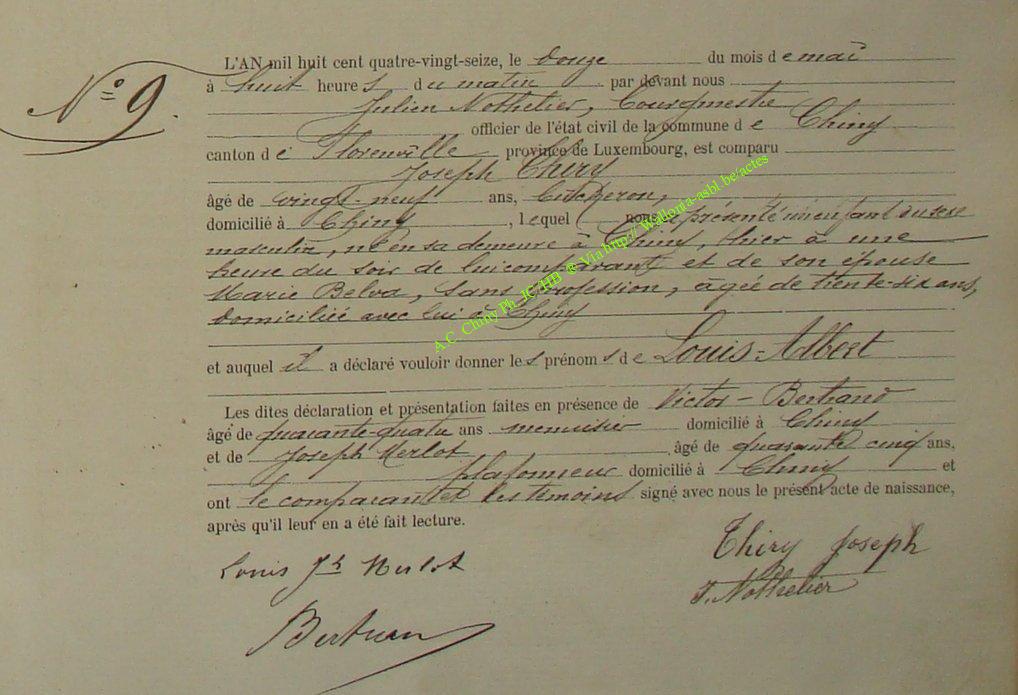 N° 9.
L'AN mil huit cent quatre-vingt-seize, le douze du mois de mai
à huit heures du matin par devant nous
Julien Nothelier, Bourgmestre
officier de l'état civil de la commune de Chiny
canton de Florenville province de Luxembourg, est comparu
Joseph Thiry
âgé de vingt-neuf ans, bûcheron,
domicilié à Chiny, lequel nous a présenté un enfant du sexe
masculin, né en sa demeure à Chiny, hier à une
heure du soir de lui comparant et de son épouse
Marie Belva, sans profession, âgée de trente-six ans,
domiciliée avec lui à Chiny
et auquel il a déclaré vouloir donner les prénoms de Louis-Albert
Les dites déclaration et présentation faites en présence de Victor Bertrand
âgé de quarante-quatre ans menuisier domicilié à Chiny
et de Joseph Merlot, âgé de quarante cinq ans,
plafonneur domicilié à Chiny et
ont le comparant et les témoins signé avec nous le présent acte de naissance,
après qu'il leur en a été fait lecture.
Louis Jh Merlot
Thiry Joseph
J. Nothelier
Bertran
A.C. Chiny Ph JC HB ® Via http:// Wallonia-asbl.be/actes